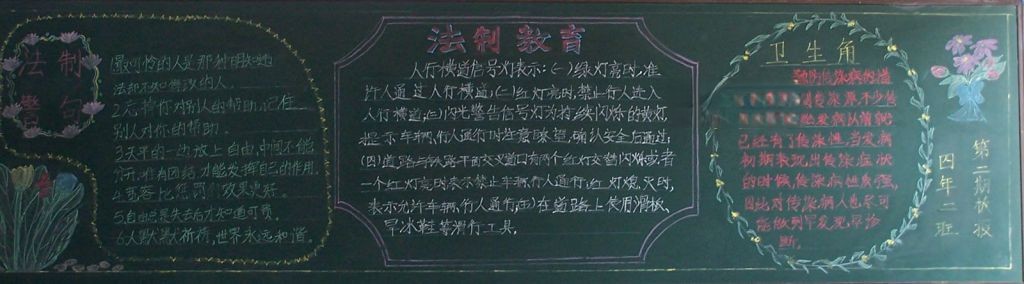 法制
警句
1.最可怜的人是那种明知地
法却不知悔改的人.
2.忘掉你对别人的帮助,记住
别人对你的帮助.
3.天平的一边放上自由,中间不能
才能发挥自己的作用.
4.宽容比惩罚效果更好.
5.自由总是失去后才知道可贵.
6.人默默祈祷,世界永远和谐.
法制教育
人行横道信号灯表示:(一)绿灯亮时,准
许人通过人行横道;(二)红灯亮时,禁止行人进入
人行横道;(三)闪光警告信号灯为持续闪烁的黄灯,
提示车辆,行人通行时注意瞭望,确认安全后通过;
(四)道路与铁路平面交叉道口有两个红灯交替闪烁或者
一个红灯亮时,表示禁止车辆,行人通行,红灯熄灭时,
表示允许车辆,行人通行;(五)在道路上使用滑板、
旱冰鞋等滑行工具.
卫生角
预防传染病的措
传染源不少传
发病以前就
已经有了传染性,当发病
初期表现出传染症状
的时候,传染病性最强,
因此对传染病人也尽可
能做到早发现,早诊
断.
第二期板报
四年二班